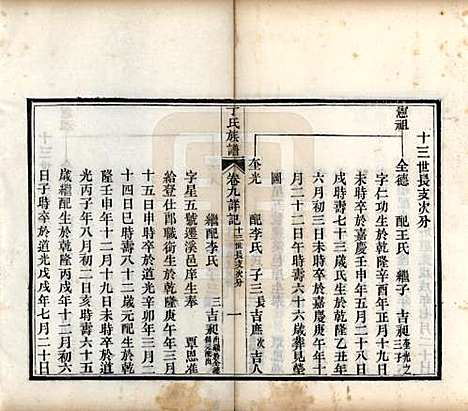 十三世長支次分
憲祖
全德 配王氏 繼子 吉昶 奎光之三子
字仁功生於乾隆辛酉年正月十九日
時卒於嘉慶壬申年五月二十二日
時壽七十二歲氏生於乾隆乙丑年
六月初三日未時卒於嘉慶庚申年
月二十二日 時壽五十六歲葬見塋
圖
奎光 配李氏 子三 長吉庶 次吉人
丁氏族譜
卷九詳記 十三世長支次分
一
三吉昶
繼配李氏 賈思准
字星五號運溪邑庠生奉
給登仕郎職銜生於乾隆庚午年三月
十五日申時卒於道光辛卯年三月二
十四日巳時壽八十二歲元配生於乾
隆壬申年十二月十九日未時卒於道
光丙子年八月初二日亥時壽六十五
歲繼配生於乾隆丙戌年十二月初六
日子時卒於道光戊戌年七月二十日